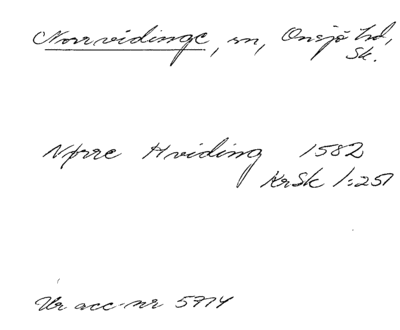 Norrvidinge, sn, Onsjö hd,
Sk.
Nørre Hviding 1582
KrSk 1:251
Ur acc-nr 5714